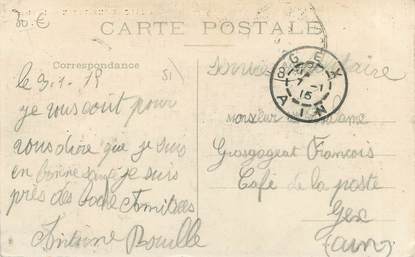 80.€
CARTE POSTALE
Correspondance
le 3.1.15
51
je vous écrit pour
vous dire que je suis
en bonne santé je suis
près des
Antoine Rouille
Service militaire
GEX
7-1
15
AIN
Monsieur et Madame
Grosgogeat François
Café de la poste
Gex
(ain)